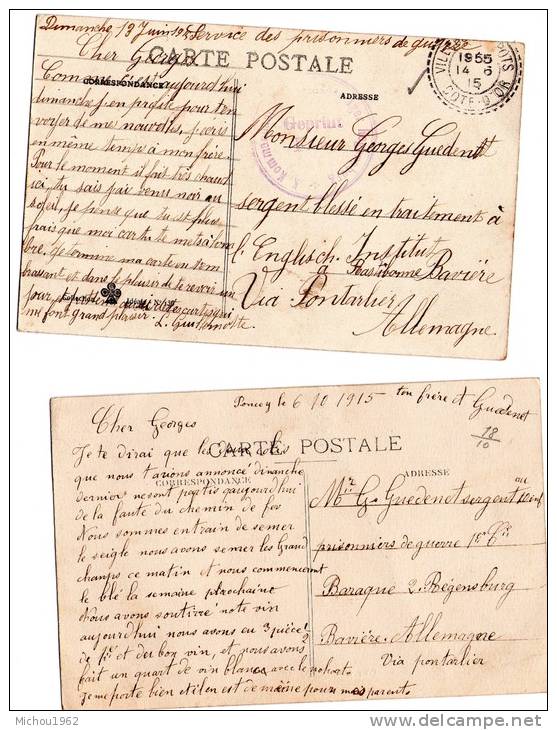 Dimanche 13 Juin 1915 Service des prisonniers de guerre
Cher Georges
CARTE POSTALE
CORRESPONDANCE
ADRESSE
1955
14 - 6
15
COTE-D'OR
Geprüft
Comme c'est aujourd'hui
dimanche j'en profite pour t'en
voyer de mes nouvelles, j'ecris
en même temps à mon frère.
Pour le moment il fait très chaud
ici, tu sais pais venir noir au
soleil, je pense que tu est plus
pais que moi car tu mets à l'om
bre. Je termine ma carte en t'em
brassant et dans le plaisir de te revoir un
jour
mi font grand plaisir. L. Guillemotte.
Monsieur Georges Guedenet
sergent blessé en traitement à
l'Englisch. Institut
à
Bavière
Via Pontarlier
Allemagne
Poncey le 6/10 1915 ton frère A Guedenet
Cher Georges
18/10
CARTE POSTALE
CORRESPONDANCE
ADRESSE
Je te dirai que les deux colis
que nous t'avions annoncé dimanche
dernier ne sont partis qaujourd'hui
de la faute du chemin de fer
Nous sommes entrain de semer
le seigle nous avons semer les Grand
champs ce matin et nous commencent
le blé la semaine plrochaine
Nous avons soutirré note vin
aujourd'hui nous avons eu 3 pièces 1/2
de et du bon vin, et nous avons
fait un quart de vin blanc avec le
Je me porte bien et il en est de même pour mes parents.
Mr G. Guedenet sergent au
prisonniers de guerre 1er Cie
Baraque 2. Régensburg
Bavière. Allemagne
Via pontarlier
Michou1962
delcampe.net